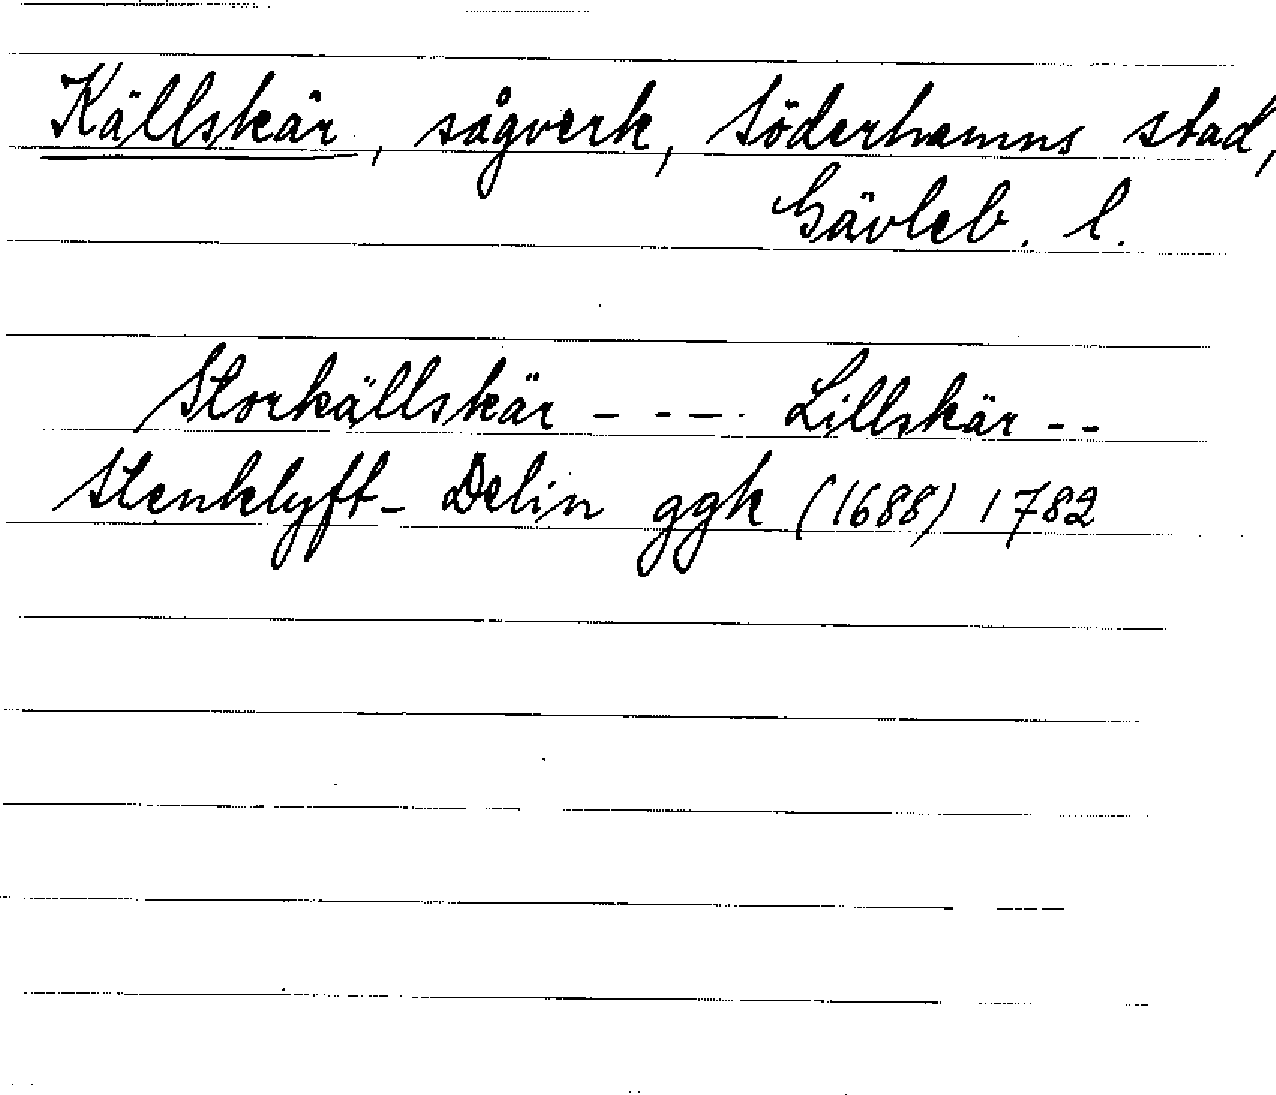 Källskär, sågverk, Söderhamns stad,
Gävleb. l.
Storkällskär - - - . Lillskär - -
Stenklyft - Delin ggk (1688) 1782